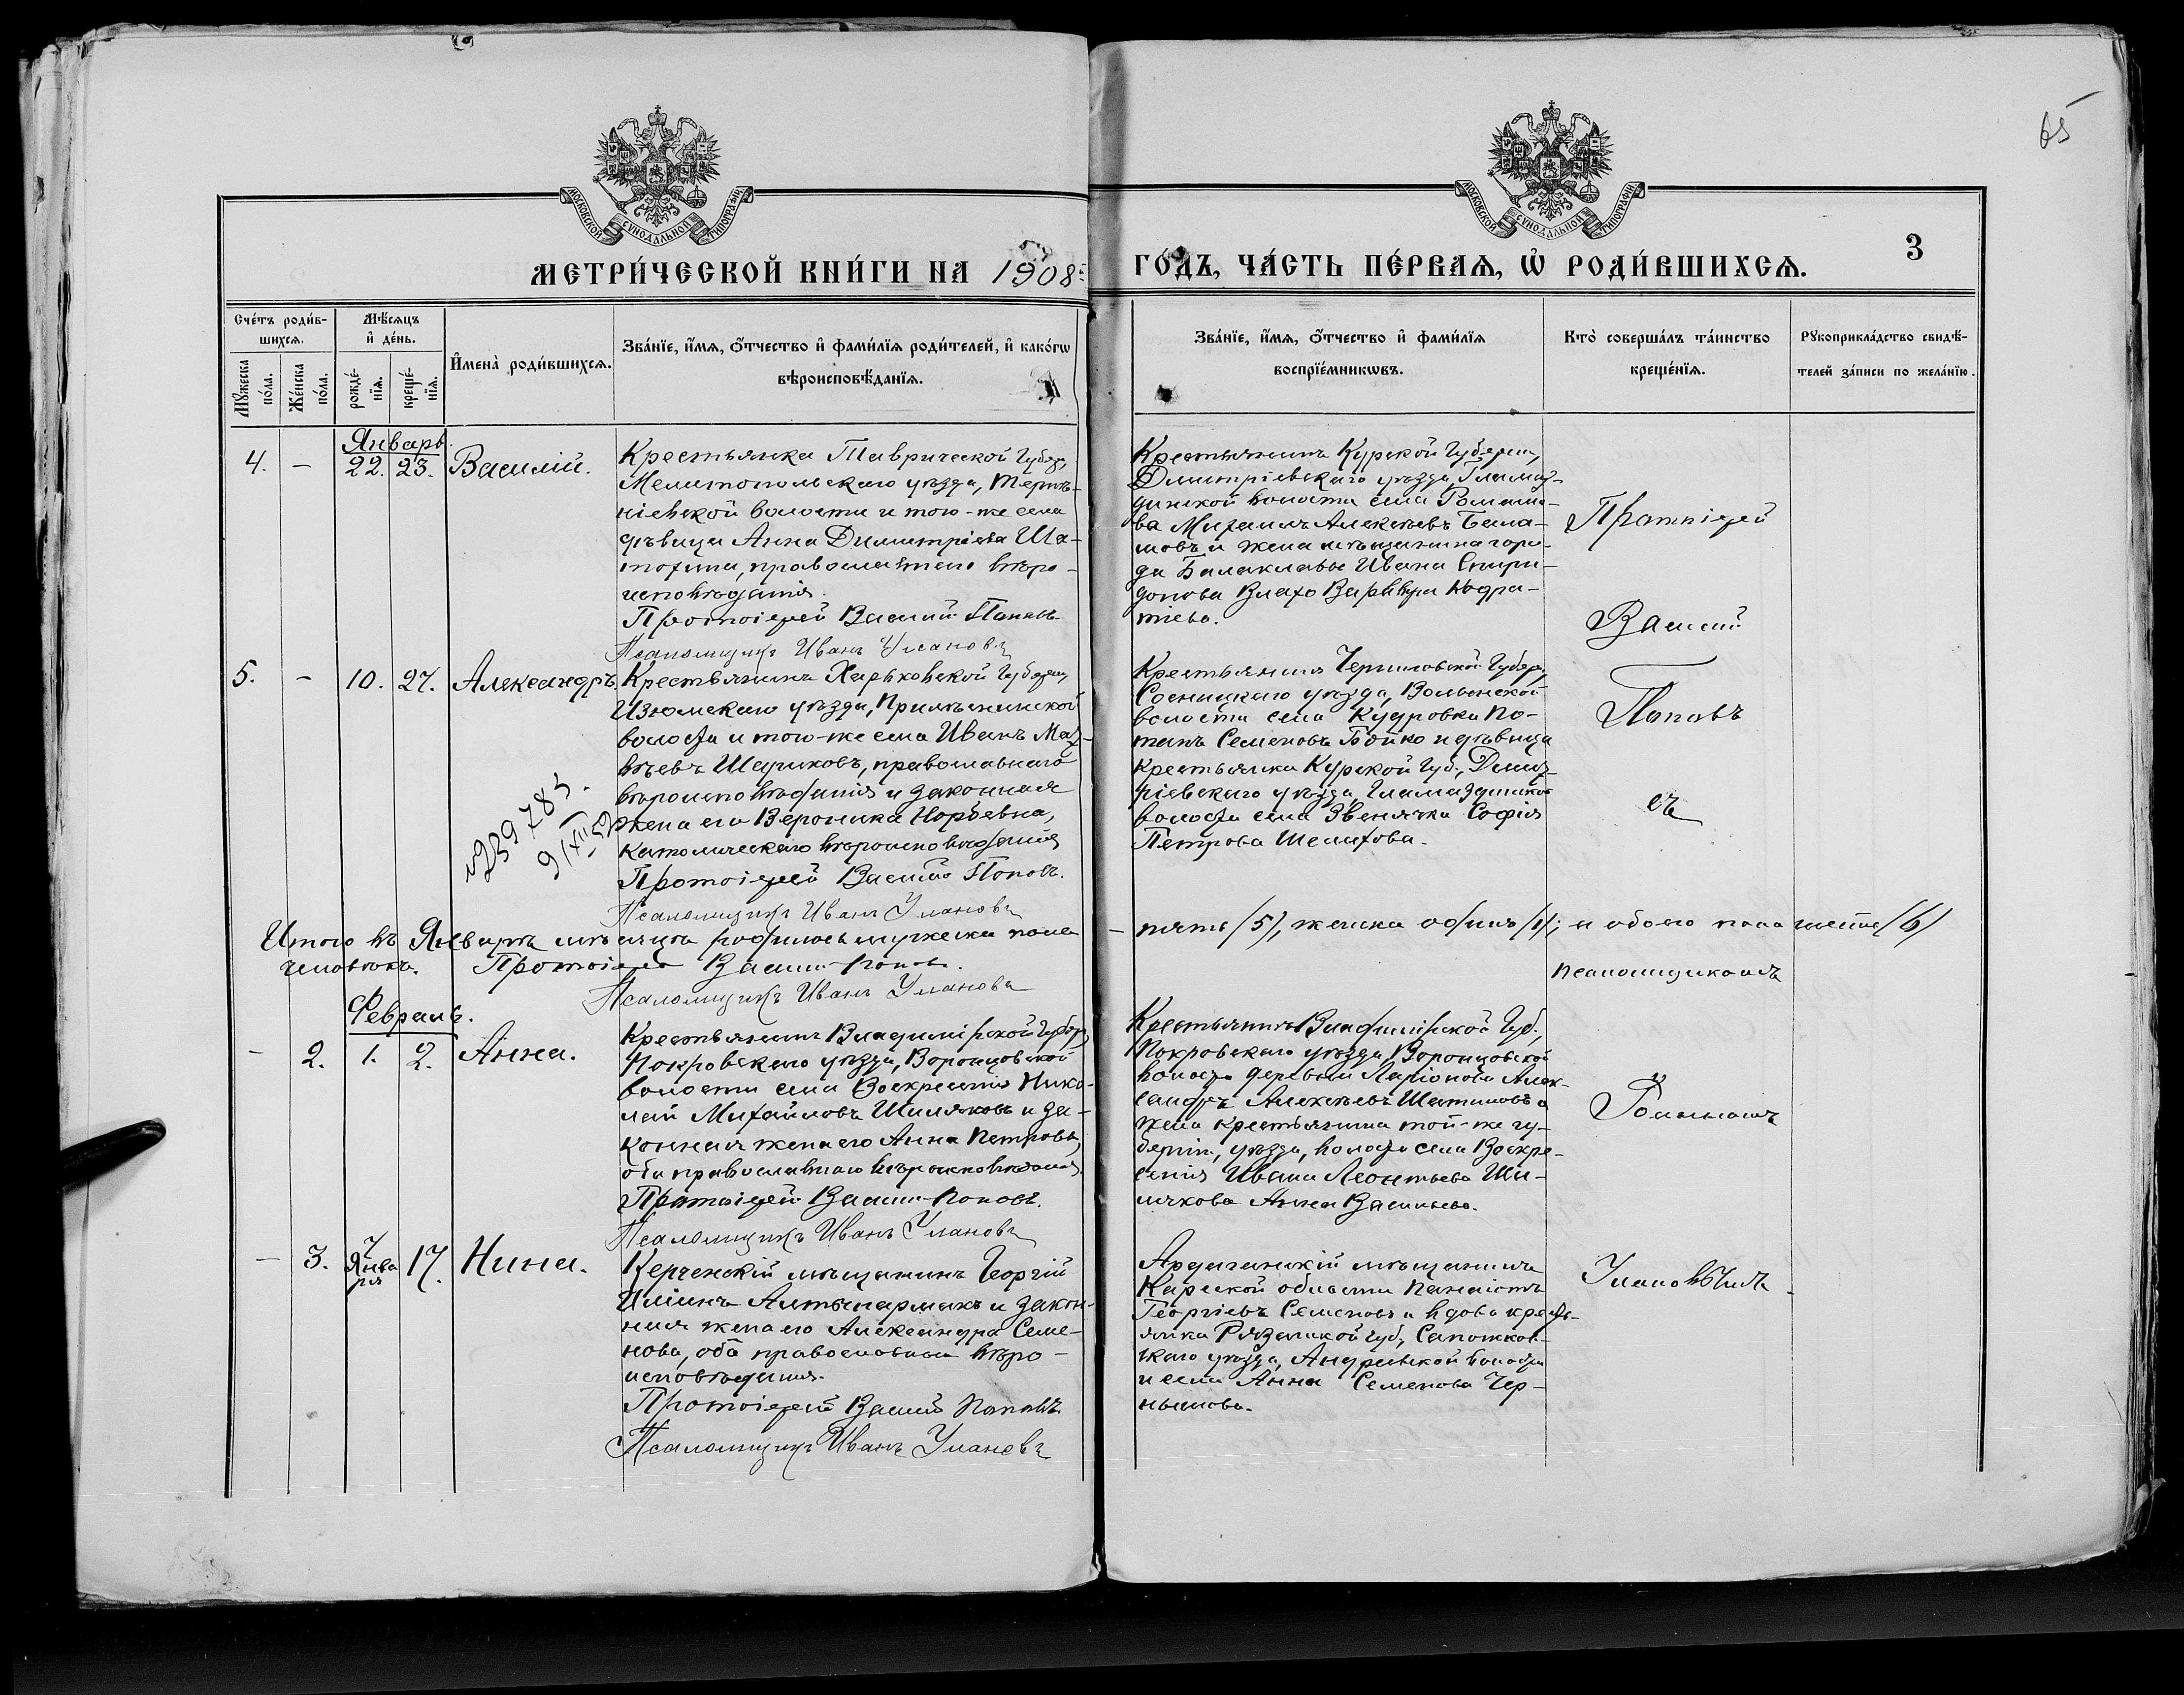 65
МОСКОВСКОЙ СѴНОДАЛЬНОЙ ТИПОГРАФІИ
МОСКОВСКОЙ СѴНОДАЛЬНОЙ ТИПОГРАФІИ
3
МЕТРИ́ЧЕСКОЙ КНИ́ГИ НА 1908й
ГО́ДЪ, ЧА́СТЬ ПЕ́РВАѦ, Ѡ҆ РОДИ́ВШИХСѦ.
Сче́тъ роди́в-
шихсѧ.
Мꙋ́жеска по́ла.
Же́нска по́ла.
Мѣ́сѧцъ
и҆ де́нь.
рожде́-нїѧ.
креще́-нїѧ.
И҆мена̀ роди́вшихсѧ.
Зва́нїе, и҆́мѧ, ѻ҆́тчество и҆ фами́лїѧ роди́телей, и҆ како́гѡ
вѣроисповѣ́данїѧ.
Зва́нїе, и҆́мѧ, ѻ҆́тчество и҆ фами́лїѧ
воспрїе́мникѡвъ.
Кто̀ соверша́лъ та́инство
креще́нїѧ.
Рꙋкоприкла́дство свидѣ́-
телей за́писи по жела́нїю.
Январь.
4. – 22. 23. Василій.
Крестьянка Таврической Губер.,
Мелитопольскаго уѣзда, Терпѣ-
ніевской волости и того-же села
дѣвица Анна Димитріева Ша-
православнаго вѣро-
исповѣданія.
Протоіерей Василій Поповъ.
Псаломщикъ Иванъ Улановъ
Крестьянинъ Курской Губерніи,
Дмитріевскаго уѣзда, Гламаз-
динской волости села Романо-
ва Михаилъ Алексѣевъ Бела-
шовъ и жена мѣщанина горо-
да Балаклавы Ивана Спири-
донова Влахо Варвара Кодра-
тіева.
Протоіерей
Василій
Поповъ
съ
5. – 10. 27. Александръ
Крестьянинъ Харьковской Губерніи,
Изюмскаго уѣзда,
волости и того-же села Иванъ Мат-
вѣевъ Шариковъ, православнаго
вѣроисповѣданія и законная
жена его Вероника Юрьевна,
католическаго вѣроисповѣданія
Протоіерей Василій Поповъ.
Псаломщикъ Иванъ Улановъ
№239783.
9/XII 52
Крестьянинъ Черниговской Губер.,
Сосницкаго уѣзда, Волынской
волости села Кудровки По-
тапъ Семеновъ Бойко и дѣвица
крестьянка Курской Губ., Дмит-
ріевскаго уѣзда, Гламаздинской
волости села Звенячки Софія
Петрова Шелихова.
Итого въ Январѣ мѣсяцѣ родилось мужеска пола
– пять (5), женска одина (1); и обоего пола шесть (6)
человѣкъ. Протоіерей Василій Поповъ.
Псаломщикъ Иванъ Улановъ
псаломщикомъ
Февраль.
– 2. 1. 2. Анна.
Крестьянинъ Владимірской Губер.,
Покровскаго уѣзда, Воронцовской
волости села Воскресенія Нико-
лай Михайловъ Шиляковъ и за-
конная жена его Анна Петрова,
оба православнаго вѣроисповѣданія.
Протоіерей Василій Поповъ.
Псаломщикъ Иванъ Улановъ
Крестьянинъ Владимірской Губ.,
Покровскаго уѣзда, Воронцовской
волости деревни Ларіонова Алек-
сандръ Алексѣевъ Шатиловъ и
жена крестьянина той-же гу-
берніи, уѣзда, волости села Воскре-
сенія Ивана Леонтьева Ши-
лякова Анна Васильева.
– 3. 7 Января 17. Нина.
Керченскій мѣщанинъ Георгій
Иліинъ Алтынармакъ и закон-
ная жена его Александра Семе-
нова, оба православнаго вѣро-
исповѣданія.
Протоіерей Василій Поповъ.
Псаломщикъ Иванъ Улановъ
Ардаганскій мѣщанинъ
Карской области Панаіотъ
Георгіевъ Семеновъ и вдова кресть-
янка Рязанской губ., Сапожков-
скаго уѣзда, Андреевской волости
и села Анна Семенова Чер-
нышова.
Улановымъ.